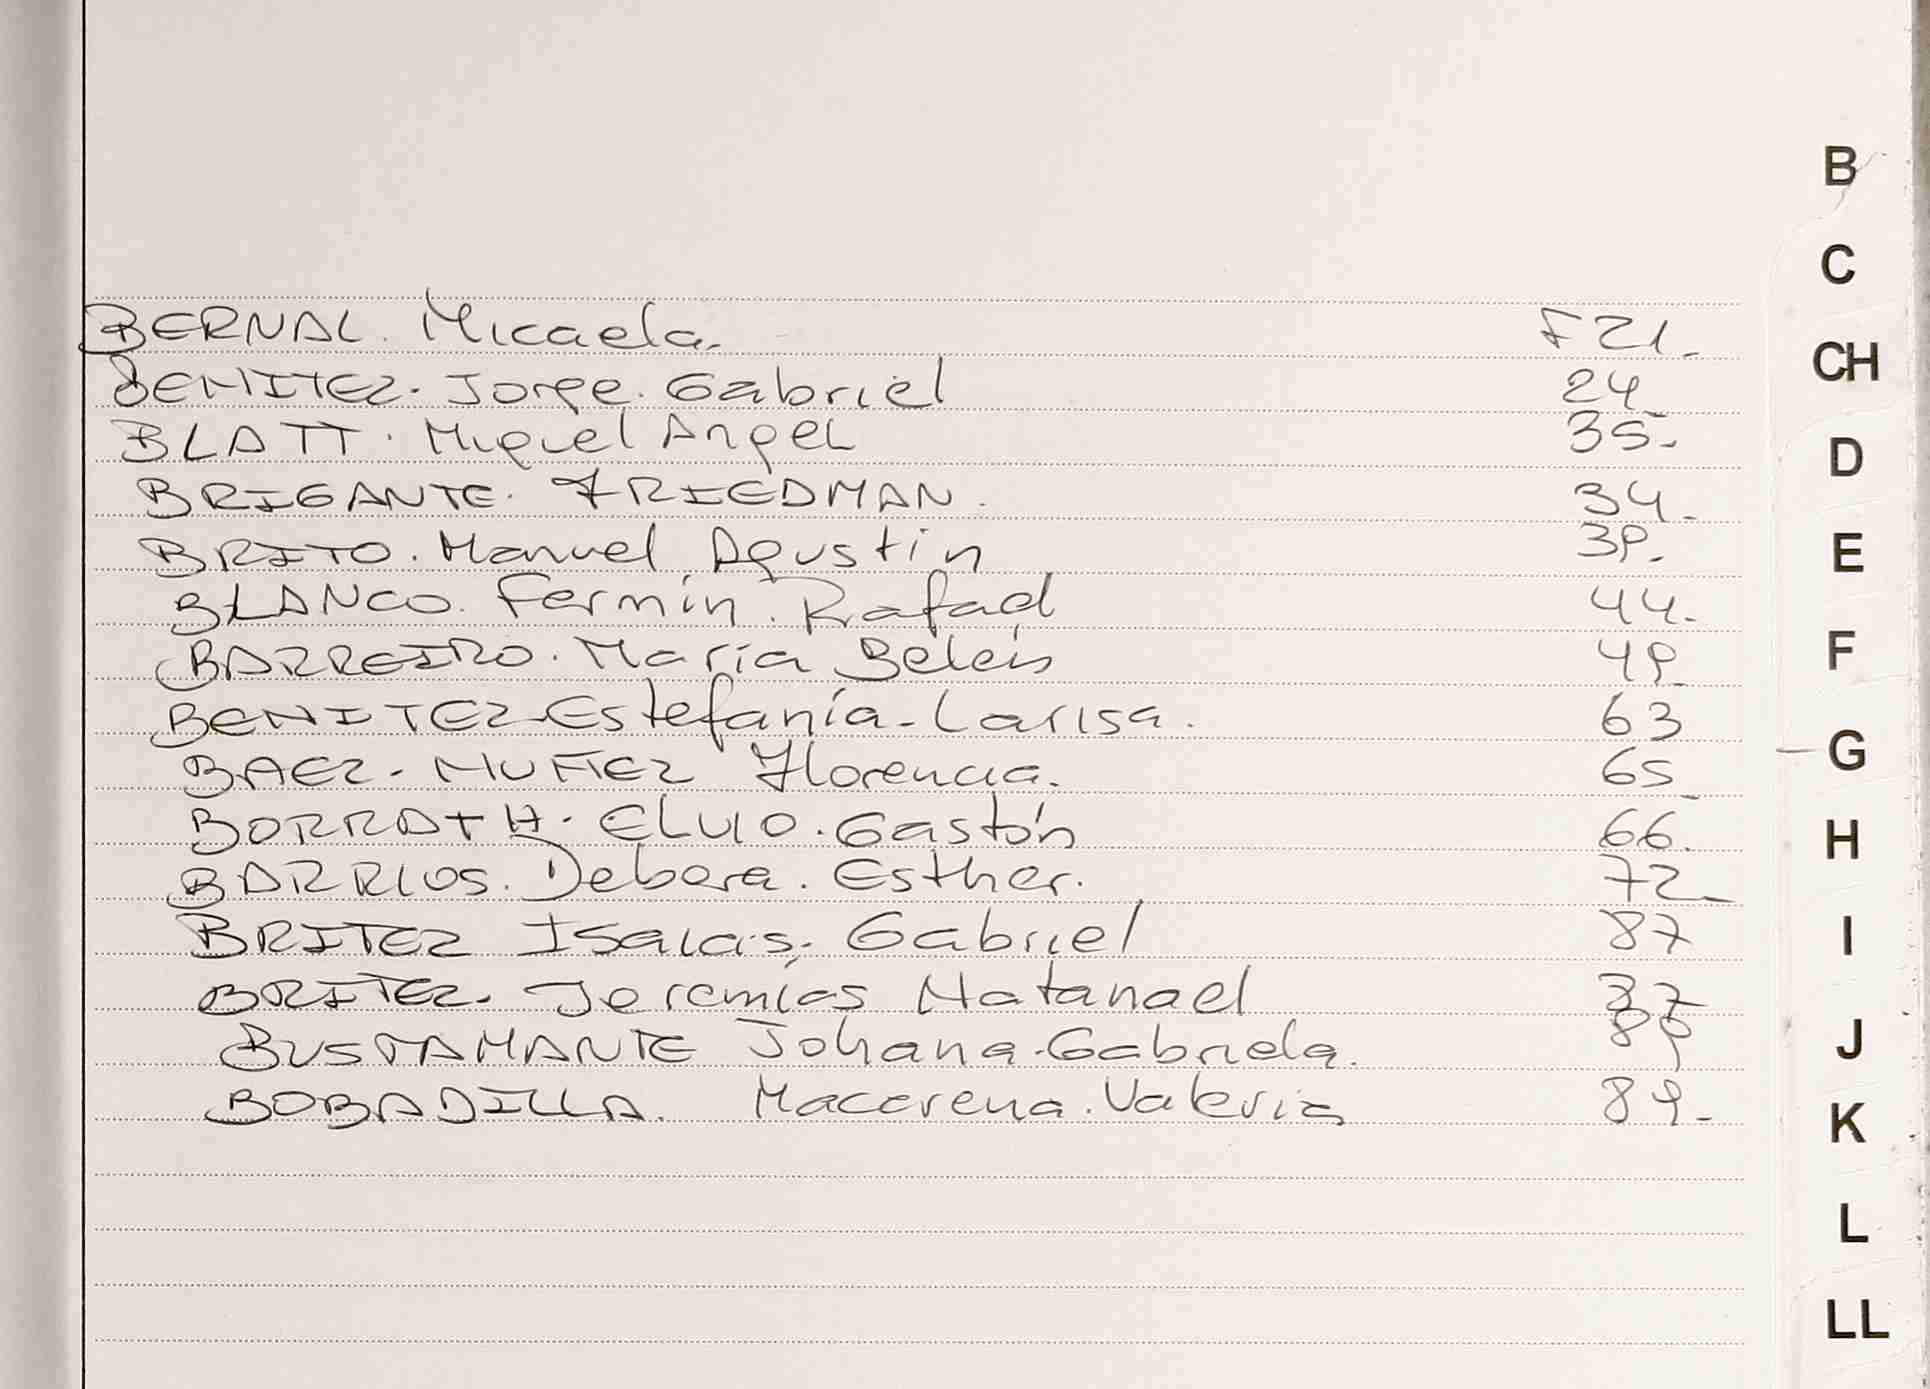 BERNAL. Micaela. F 21.
BENITEZ. Jorge. Gabriel 24
BLATT. Miguel Angel 35.
BRIGANTE. FRIEDMAN. 34.
BRITO. Manuel Agustin 39.
BLANCO. Fermín. Rafael 44.
BARREIRO. María Belén 49
BENITEZ Estefanía. Larisa. 63
BAEZ. MUÑEZ Florencia. 65
BORRATH. ELVIO. Gastón 66.
BARRIOS. Debora. Esther. 72
BRITEZ Isaias. Gabriel 87
BRITEZ. Jeremías Natanael 37
BUSTAMANTE Johana. Gabriela. 89
BOBADILLA. Macarena. Valeria 89.
B
C
CH
D
E
F
G
H
I
J
K
L
LL